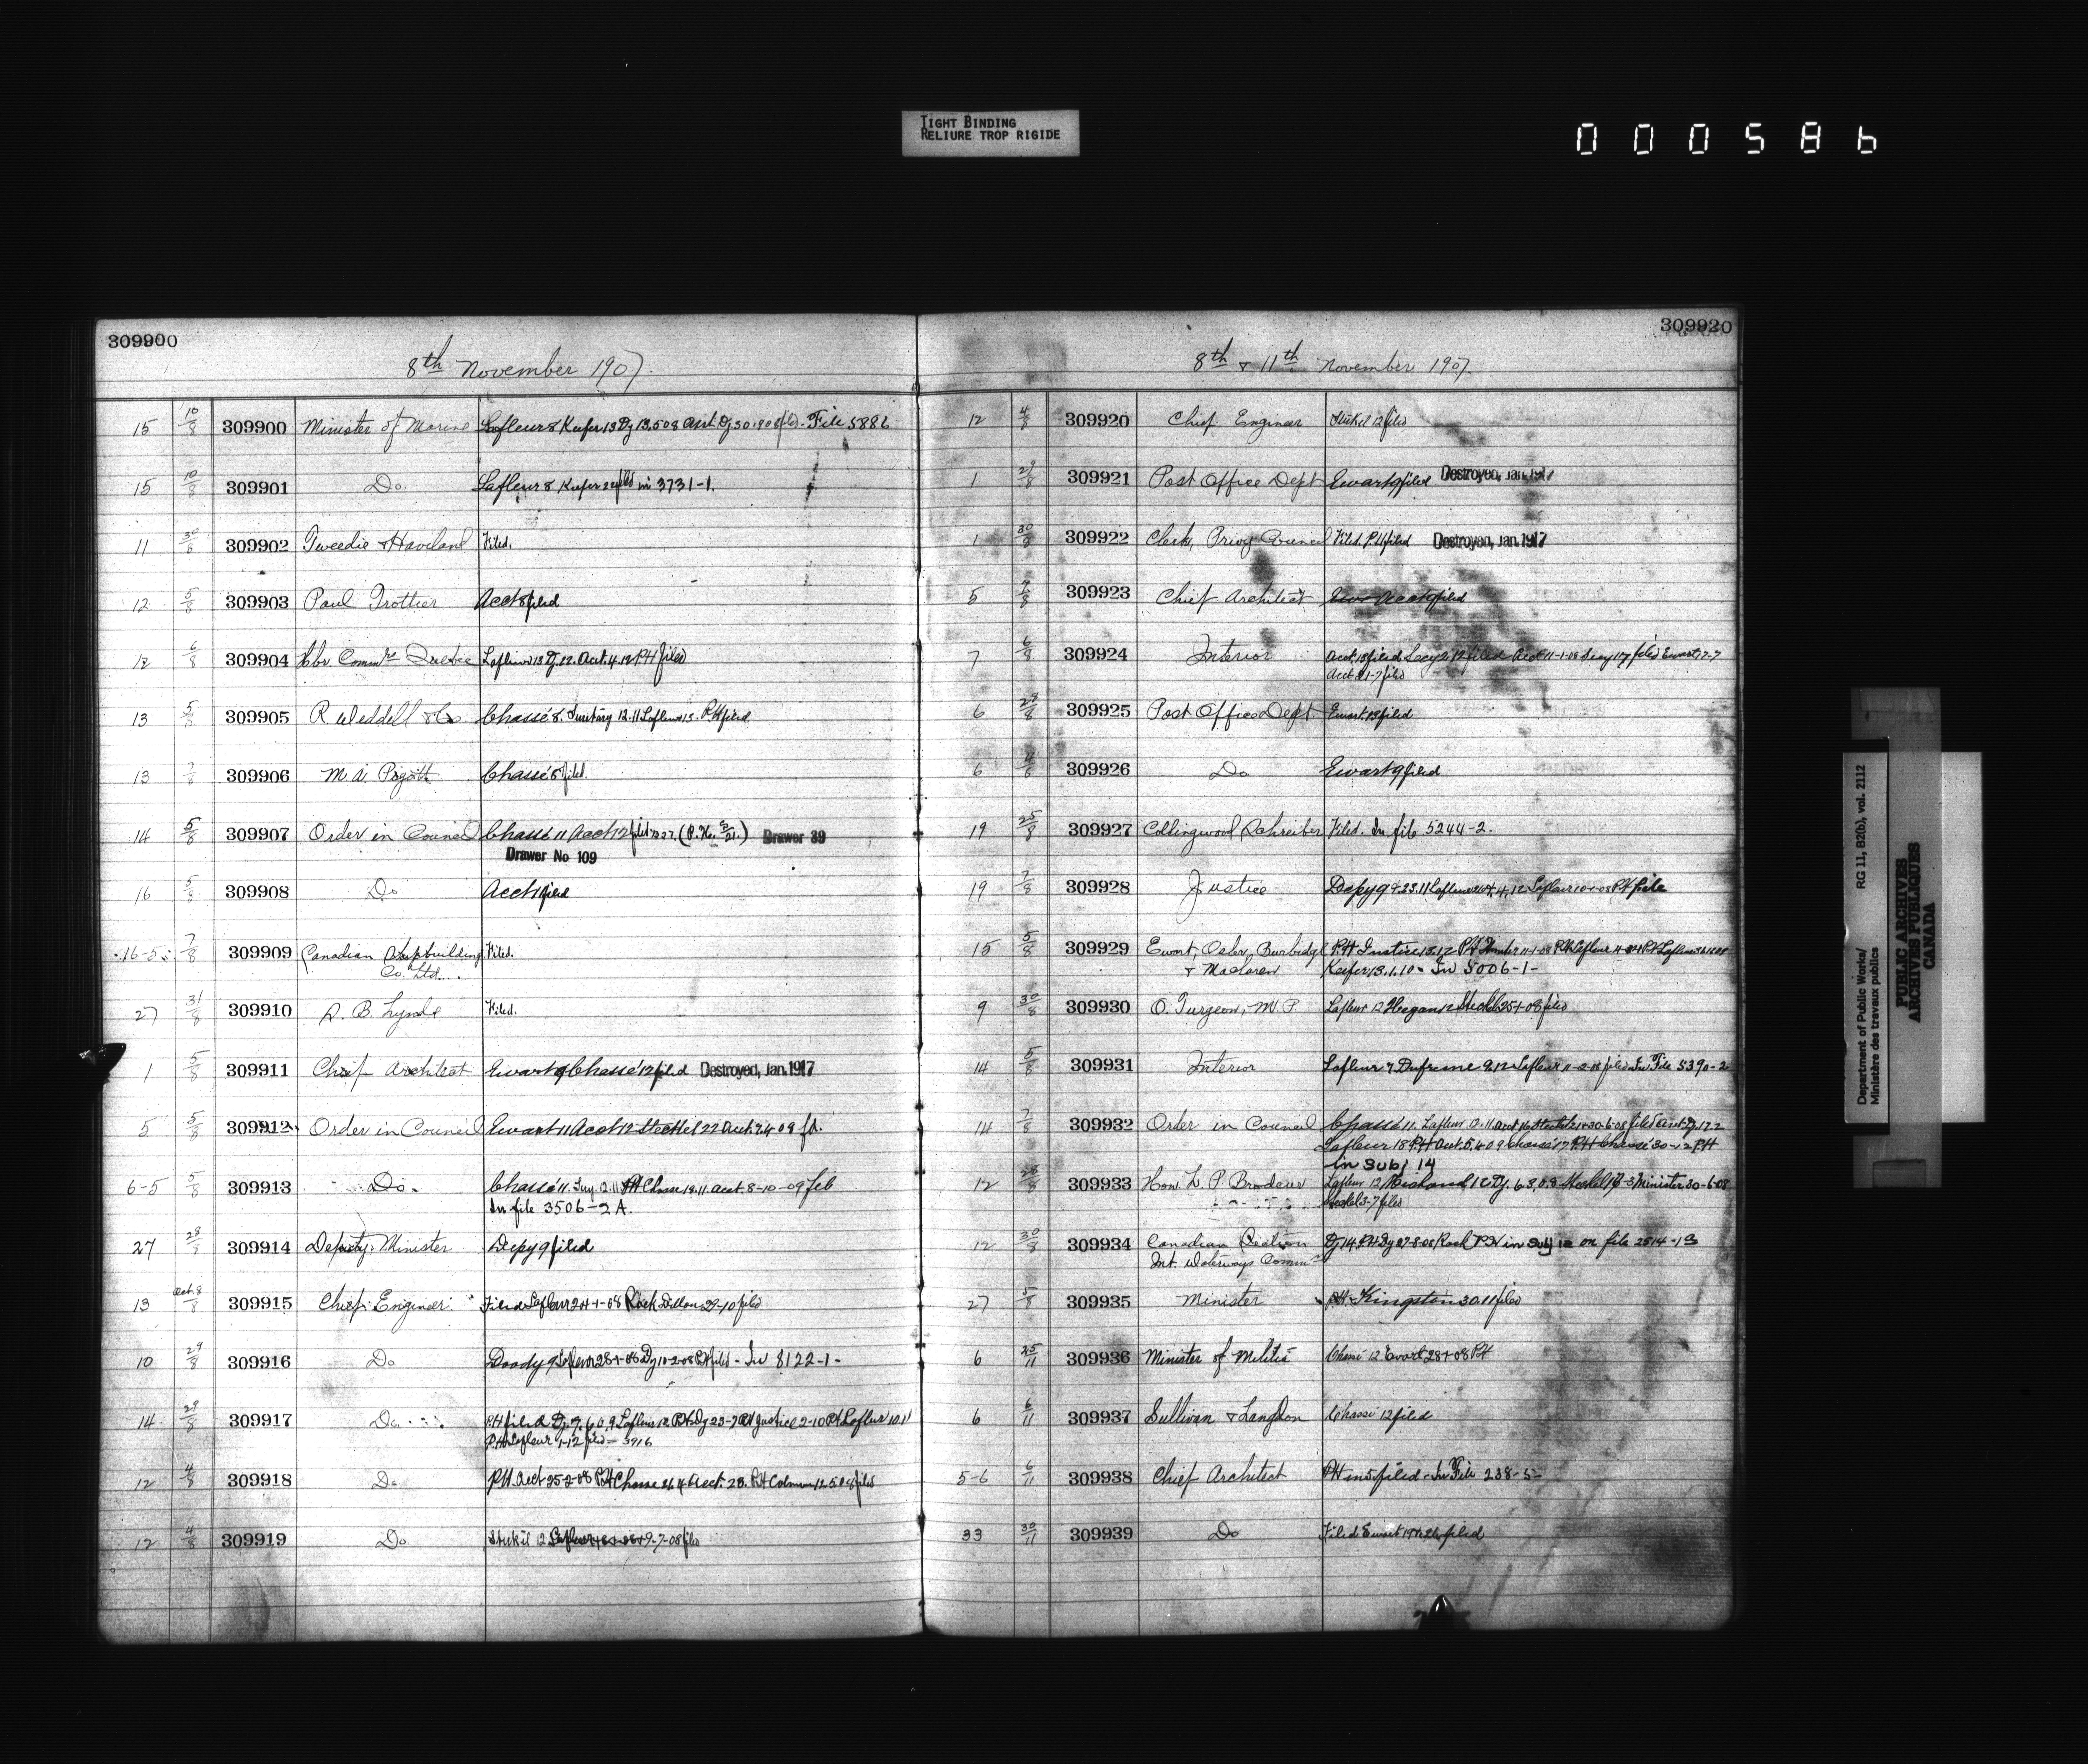 TIGHT BINDING
RELIURE TROP RIGIDE
000586
309900
8th November 1907.
15 10/8 309900 Minister of Marine Lafleur 8 Keefer 13 Dy 13.508 File 5886
15 10/8 309901 Do Lafleur 8 Keefer 22 filed in 3731-1.
11 30/8 309902 Tweedie & Haviland Filed.
12 5/8 309903 Paul Trottier Acct 8 filed
12 6/8 309904 Hbr. Commrs Quebec Lafleur 13 Dy. 12. Acct. 4.12 PH filed
13 5/8 309905 R Weddell & Co Chassé 8. 12.11 Lafleur 15. PH filed
13 7/8 309906 M. A. Pigott Chassé 8 filed.
14 5/8 309907 Order in Council Chassé 11 Acct 12 filed Drawer 39
Drawer No 109
16 5/8 309908 Do Acct filed
16-5 7/8 309909 Canadian Shipbuilding Filed.
Co. Ltd.
27 31/8 309910 A. B. Lynde Filed.
1 5/8 309911 Chief Architect Ewart 9 Chassé 12 filed Destroyed, Jan. 1917
5 5/8 309912 Order in Council Ewart 11 Acct 12 Steckel 22 Acct. 9.4 09 fd.
6-5 5/8 309913 Do. Chassé 11. PH Chasse 18.11 acct. 8-10-09 feb
In file 3506-2 A.
27 28/8 309914 Deputy Minister Depy 9 filed
13 Oct. 8/8 309915 Chief Engineer Filed Lafleur 24-1-08 Rock Dillon 29-10 filed
10 29/8 309916 Do Doody 9 Lafleur 28-1-08 Dy 11-2-08 PH filed - In 8122-1-
14 29/8 309917 Do PH filed Dy. 9. 6.0.9 Lafleur 12 PH Dy 23-7 PH Justice 2-10 PH Lafleur 10.11
PH Lafleur 1-12 filed - 3916
12 4/8 309918 Do PH. Acct 25-2-08 PH Chasse 26.4 Acct. 28. PH 12.5.08 filed
12 4/8 309919 Do Stekel 12 9-7-08 filed
309920
8th & 11th November 1907.
12 4/8 309920 Chief Engineer Stekel 12 filed
1 29/8 309921 Post Office Dept Ewart 9 filed Destroyed, Jan. 1917
1 30/8 309922 Clerk, Privy Council Filed. P.H filed Destroyed, Jan. 1917
5 7/8 309923 Chief Architect Acct 9 filed
7 6/8 309924 Interior Acct. 18 filed Secy 2.12 filed Acct 11-1-08 Secy 17 filed Ewart 7-7
Acct 21-7 filed
6 29/8 309925 Post Office Dept Ewart. 13 filed
6 309926 Do Ewart 9 filed
19 25/8 309927 Collingwood Schreiber Filed. In file 5244-2.
19 7/8 309928 Justice Depy 9 & 23.11 Lafleur 4.12 Lafleur 10-1-08 PH file
15 5/8 309929 Ewart, Osler, Burbidge PH Justice 13.12 PH 11-1-08 PH Lafleur
& Maclaren Keefer. 13.1.10 - In 5006-1-
9 30/8 309930 O. Turgeon, M P Lafleur 12 Hegan 12 Steckel 25-1-08 filed
14 5/8 309931 Interior Lafleur 7 Dufresne 9.12 Lafleur 11-2-08 filed In File 5390-2
14 7/8 309932 Order in Council Chassé 11. Lafleur 12.11 Acct 16 30-6-08 filed Acct. Dy. 17.2
Lafleur 18 PH Acct. 5.4 09 Chassé 17 PH Chassé 30-12 PH
in Subj 14
12 28/8 309933 Hon. L. P. Brodeur Lafleur 12 Michaud 12 Dy. 6.3.08 Steckel 17-3 Minister 30-6-08
Steckel 3-7 filed
12 30/8 309934 Canadian Section Dy 14 PH Dy 27-8-08 Rock PH in Subj 12 on file 2514-13
Int. Waterways Commn
27 5/8 309935 Minister PH Kingston 30.11 filed
6 25/11 309936 Minister of Militia Chassé 12. Ewart 28-1-08 PH
6 6/11 309937 Sullivan & Langdon Chassé 12 filed
5-6 6/11 309938 Chief Architect PH in 5 filed - In File 238-5-
33 30/11 309939 Do Filed Ewart filed
Department of Public Works/
Ministère des travaux publics
RG 11, B2(b), vol. 2112
PUBLIC ARCHIVES
ARCHIVES PUBLIQUES
CANADA